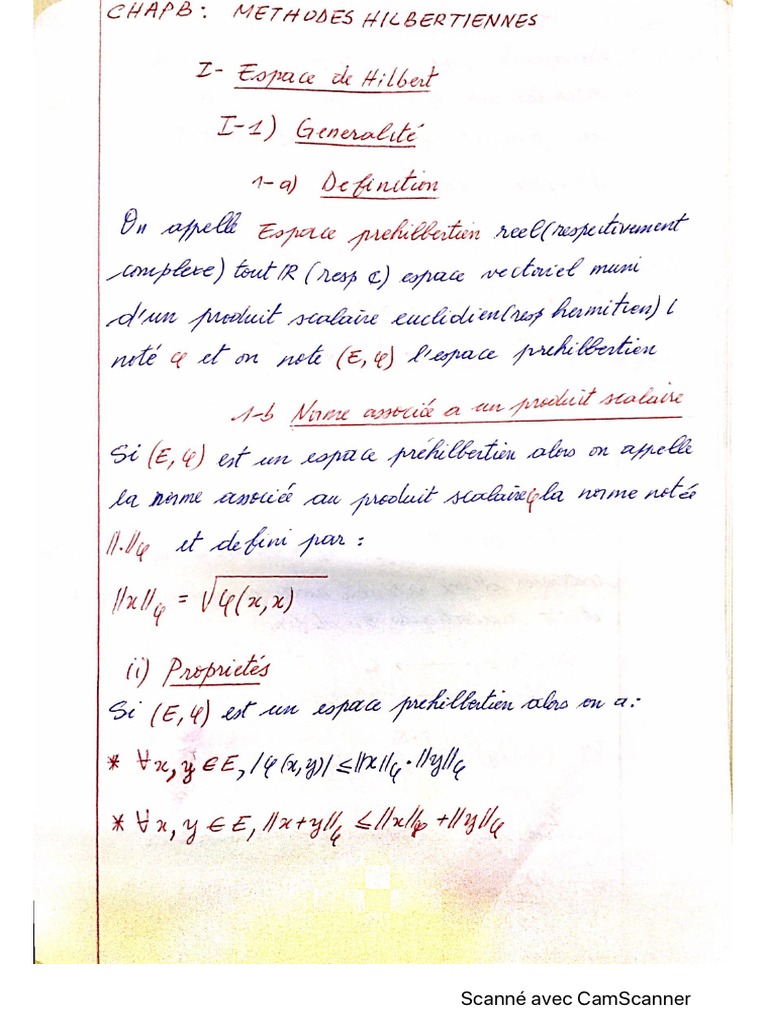 CHAPB: METHODES HILBERTIENNES
I- Espace de Hilbert
I-1) Generalité
1-a) Definition
On appelle Espace prehilbertien reel (respectivement
complexe) tout IR (resp ℂ) espace vectoriel muni
d'un produit scalaire euclidien (resp hermitien) (
noté φ et on note (E, φ) l'espace prehilbertien
1-b Norme associée a un produit scalaire
Si (E, φ) est un espace préhilbertien alors on appelle
la norme associée au produit scalaire φ la norme notée
||.||φ et defini par :
||x||φ = √φ(x,x)
(i) Proprietés
Si (E, φ) est un espace prehilbertien alors on a :
* ∀x, y ∈ E, |φ(x,y)| ≤ ||x||φ . ||y||φ
* ∀x, y ∈ E, ||x+y||φ ≤ ||x||φ + ||y||φ
Scanné avec CamScanner